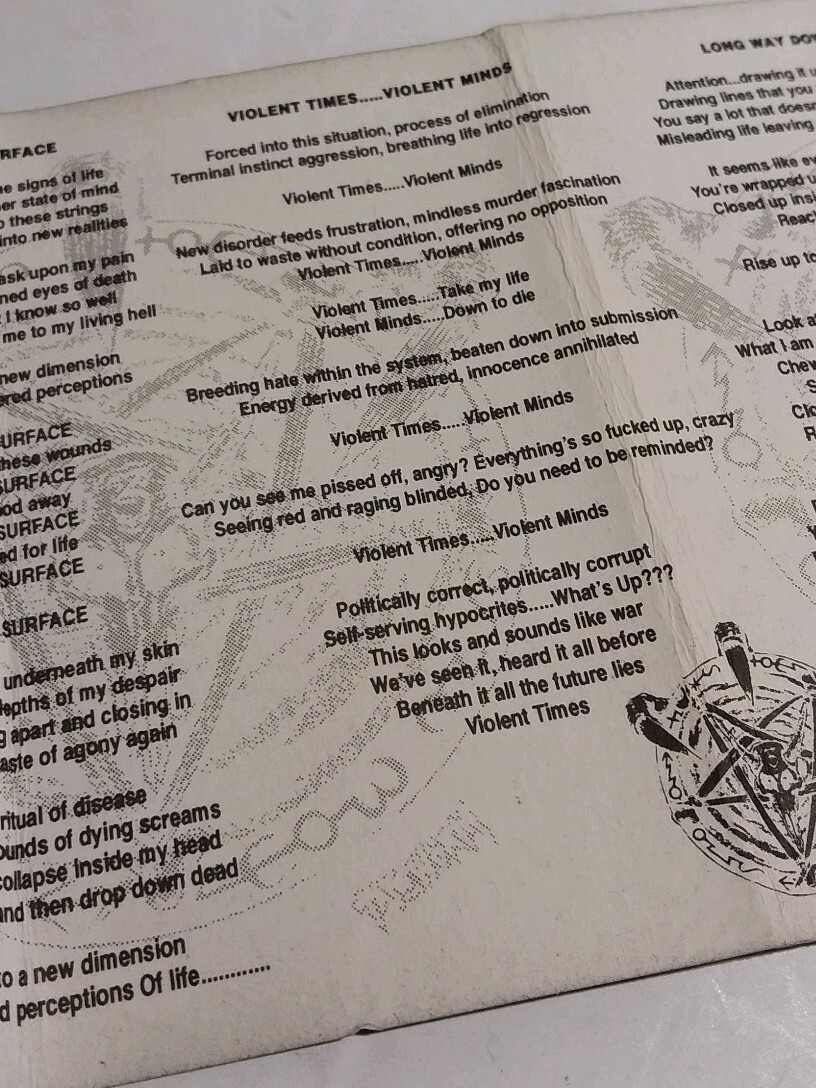 RFACE
e signs of life
er state of mind
these strings
into new realities
ask upon my pain
ned eyes of death
I know so well
me to my living hell
new dimension
ered perceptions
URFACE
hese wounds
SURFACE
od away
SURFACE
ed for life
SURFACE
SURFACE
underneath my skin
depths of my despair
g apart and closing in
aste of agony again
ritual of disease
ounds of dying screams
collapse inside my head
and then drop down dead
to a new dimension
d perceptions Of life............
VIOLENT TIMES.....VIOLENT MINDS
Forced into this situation, process of elimination
Terminal instinct aggression, breathing life into regression
Violent Times.....Violent Minds
New disorder feeds frustration, mindless murder fascination
Laid to waste without condition, offering no opposition
Violent Times.....Violent Minds
Violent Times.....Take my life
Violent Minds.....Down to die
Breeding hate within the system, beaten down into submission
Energy derived from hatred, innocence annihilated
Violent Times.....Violent Minds
Can you see me pissed off, angry? Everything's so fucked up, crazy
Seeing red and raging blinded, Do you need to be reminded?
Violent Times.....Violent Minds
Politically correct, politically corrupt
Self-serving hypocrites.....What's Up???
This looks and sounds like war
We've seen it, heard it all before
Beneath it all the future lies
Violent Times
LONG WAY DOW
Attention...drawing it u
Drawing lines that you
You say a lot that doesn
Misleading life leaving
It seems like ev
You're wrapped u
Closed up insi
Reac
Rise up to
Look a
What I am
Chew
S
Clo
R